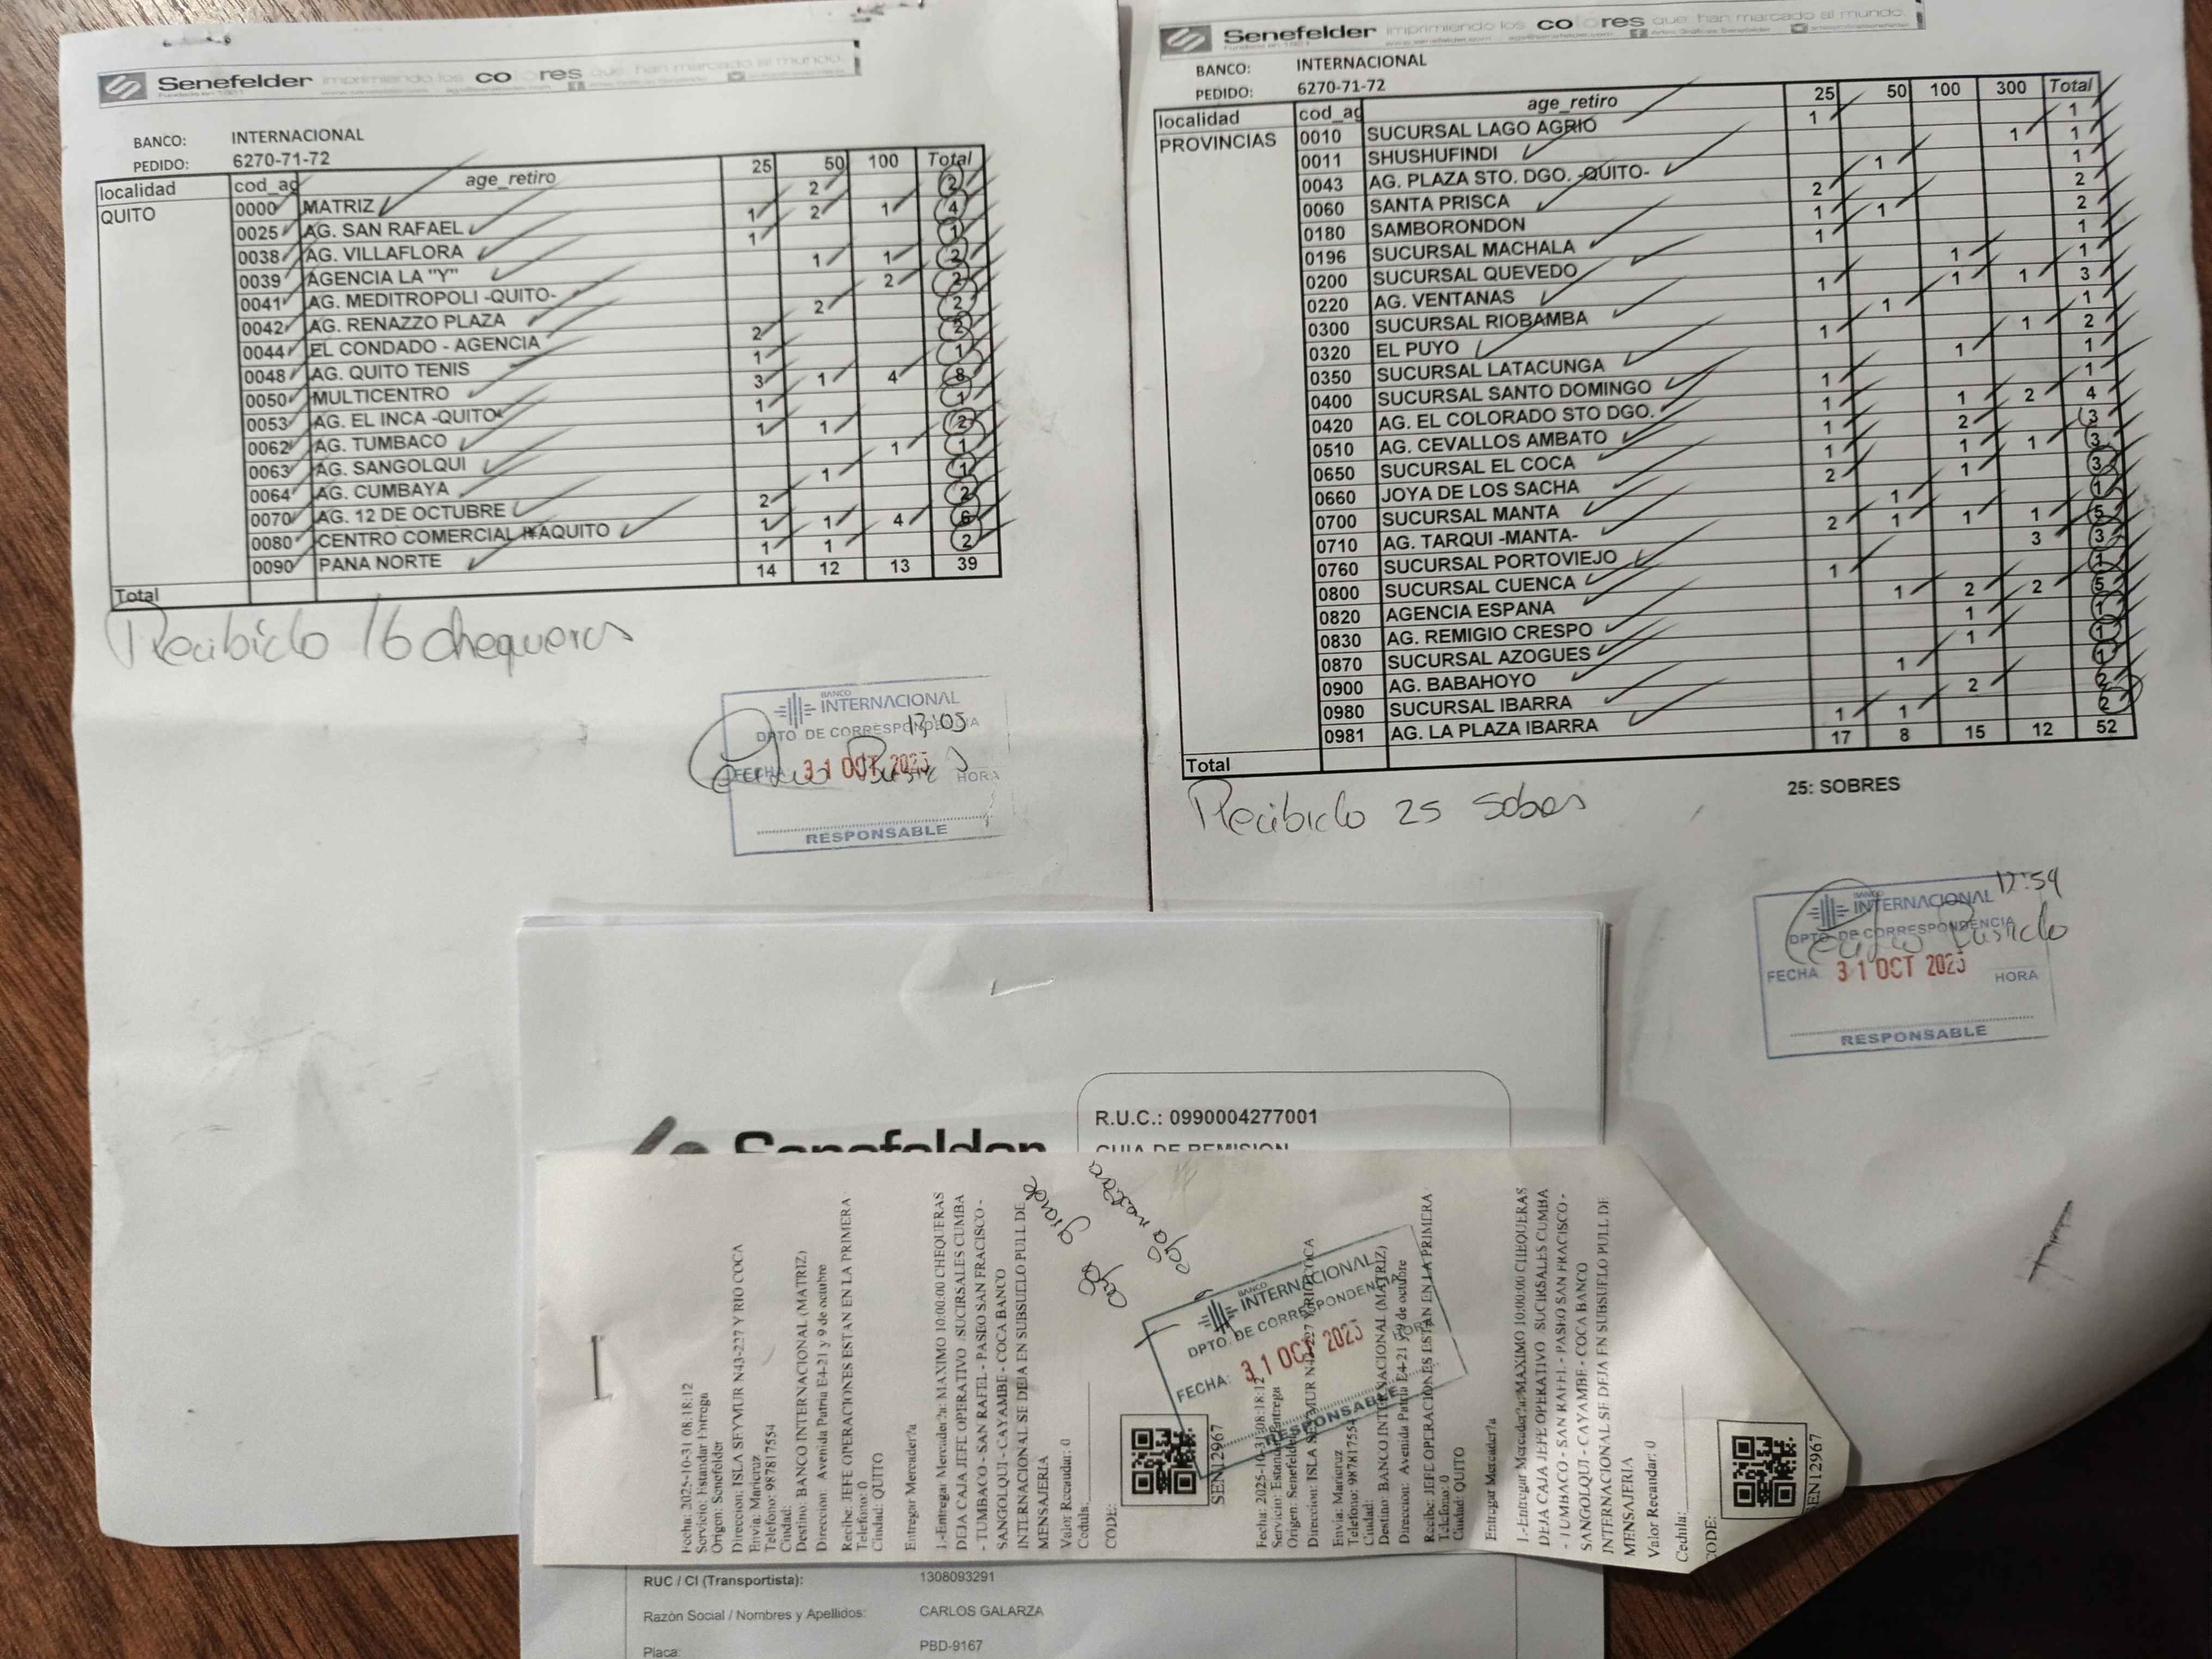 Senefelder imprimiendo los colores que han marcado al mundo.
BANCO: INTERNACIONAL
PEDIDO: 6270-71-72
localidad cod_ag age_retiro 25 50 100 Total
QUITO 0000 MATRIZ 2 2
0025 AG. SAN RAFAEL 1 2 1 4
0038 AG. VILLAFLORA 1 1
0039 AGENCIA LA "Y" 1 1 2
0041 AG. MEDITROPOLI -QUITO- 2 2
0042 AG. RENAZZO PLAZA 2 2
0044 EL CONDADO - AGENCIA 2 2
0048 AG. QUITO TENIS 1 1
0050 MULTICENTRO 3 1 4 8
0053 AG. EL INCA -QUITO- 1 1
0062 AG. TUMBACO 1 1 2
0063 AG. SANGOLQUI 1 1
0064 AG. CUMBAYA 1 1
0070 AG. 12 DE OCTUBRE 2 2
0080 CENTRO COMERCIAL IÑAQUITO 1 1 4 6
0090 PANA NORTE 1 1 2
Total 14 12 13 39
Recibido 16 chequeras
BANCO
INTERNACIONAL
13:05
DPTO DE CORRESPONDENCIA
FECHA 31 OCT 2025 HORA
RESPONSABLE
Senefelder imprimiendo los colores que han marcado al mundo.
BANCO: INTERNACIONAL
PEDIDO: 6270-71-72
localidad cod_ag age_retiro 25 50 100 300 Total
PROVINCIAS 0010 SUCURSAL LAGO AGRIO 1 1
0011 SHUSHUFINDI 1 1
0043 AG. PLAZA STO. DGO. -QUITO- 1 1
0060 SANTA PRISCA 2 2
0180 SAMBORONDON 1 1 2
0196 SUCURSAL MACHALA 1 1
0200 SUCURSAL QUEVEDO 1 1
0220 AG. VENTANAS 1 1 1 3
0300 SUCURSAL RIOBAMBA 1 1
0320 EL PUYO 1 1 2
0350 SUCURSAL LATACUNGA 1 1
0400 SUCURSAL SANTO DOMINGO 1 1
0420 AG. EL COLORADO STO DGO. 1 1 2 4
0510 AG. CEVALLOS AMBATO 1 2 3
0650 SUCURSAL EL COCA 1 1 1 3
0660 JOYA DE LOS SACHA 2 1 3
0700 SUCURSAL MANTA 1 1
0710 AG. TARQUI -MANTA- 2 1 1 1 5
0760 SUCURSAL PORTOVIEJO 3 3
0800 SUCURSAL CUENCA 1 1
0820 AGENCIA ESPANA 1 2 2 5
0830 AG. REMIGIO CRESPO 1 1
0870 SUCURSAL AZOGUES 1 1
0900 AG. BABAHOYO 1 1
0980 SUCURSAL IBARRA 2 2
0981 AG. LA PLAZA IBARRA 1 1 2
Total 17 8 15 12 52
25: SOBRES
Recibido 25 Sobres
12:59
BANCO
INTERNACIONAL
DPTO DE CORRESPONDENCIA
FECHA 31 OCT 2025 HORA
RESPONSABLE
Senefelder
R.U.C.: 0990004277001
GUIA DE REMISION
Fecha: 2025-10-31 08:18:12
Servicio: Estandar Entrega
Origen: Senefelder
Direccion: ISLA SEYMUR N43-227 Y RIO COCA
Envia: Maricruz
Telefono: 987817554
Ciudad:
Destino: BANCO INTERNACIONAL (MATRIZ)
Direccion: Avenida Patria E4-21 y 9 de octubre
Recibe: JEFE OPERACIONES ESTAN EN LA PRIMERA
Telefono: 0
Ciudad: QUITO
Entregar Mercader?a
1.-Entregar Mercader?a: MAXIMO 10:00:00 CHEQUERAS
DEJA CAJA JEFE OPERATIVO /SUCIRSALES CUMBA
- TUMBACO - SAN RAFEL - PASEO SAN FRACISCO -
SANGOLQUI - CAYAMBE - COCA BANCO
INTERNACIONAL SE DEJA EN SUBSUELO PULL DE
MENSAJERIA
Valor Recaudar: 0
Cedula:
CODE:
SEN12967
BANCO
INTERNACIONAL
DPTO. DE CORRESPONDENCIA
FECHA: 31 OCT 2025 HORA
RESPONSABLE
Fecha: 2025-10-31 08:18:12
Servicio: Estandar Entrega
Origen: Senefelder
Direccion: ISLA SEYMUR N43-227 Y RIO COCA
Envia: Maricruz
Telefono: 987817554
Ciudad:
Destino: BANCO INTERNACIONAL (MATRIZ)
Direccion: Avenida Patria E4-21 y 9 de octubre
Recibe: JEFE OPERACIONES ESTAN EN LA PRIMERA
Telefono: 0
Ciudad: QUITO
Entregar Mercader?a
1.-Entregar Mercader?a: MAXIMO 10:00:00 CHEQUERAS
DEJA CAJA JEFE OPERATIVO /SUCIRSALES CUMBA
- TUMBACO - SAN RAFEL - PASEO SAN FRACISCO -
SANGOLQUI - CAYAMBE - COCA BANCO
INTERNACIONAL SE DEJA EN SUBSUELO PULL DE
MENSAJERIA
Valor Recaudar: 0
Cedula:
CODE:
SEN12967
RUC / CI (Transportista): 1308093291
Razón Social / Nombres y Apellidos: CARLOS GALARZA
Placa: PBD-9167